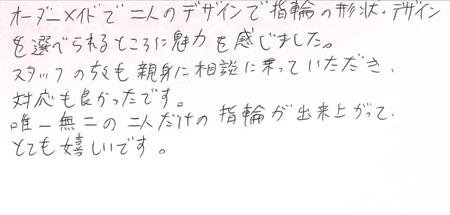 オーダーメイドで二人のデザインで指輪の形状・デザイン
を選べられるところに魅力を感じました。
スタッフの方々も親身に相談に乗っていただき、
対応も良かったです。
唯一無二の二人だけの指輪が出来上がって、
とても嬉しいです。